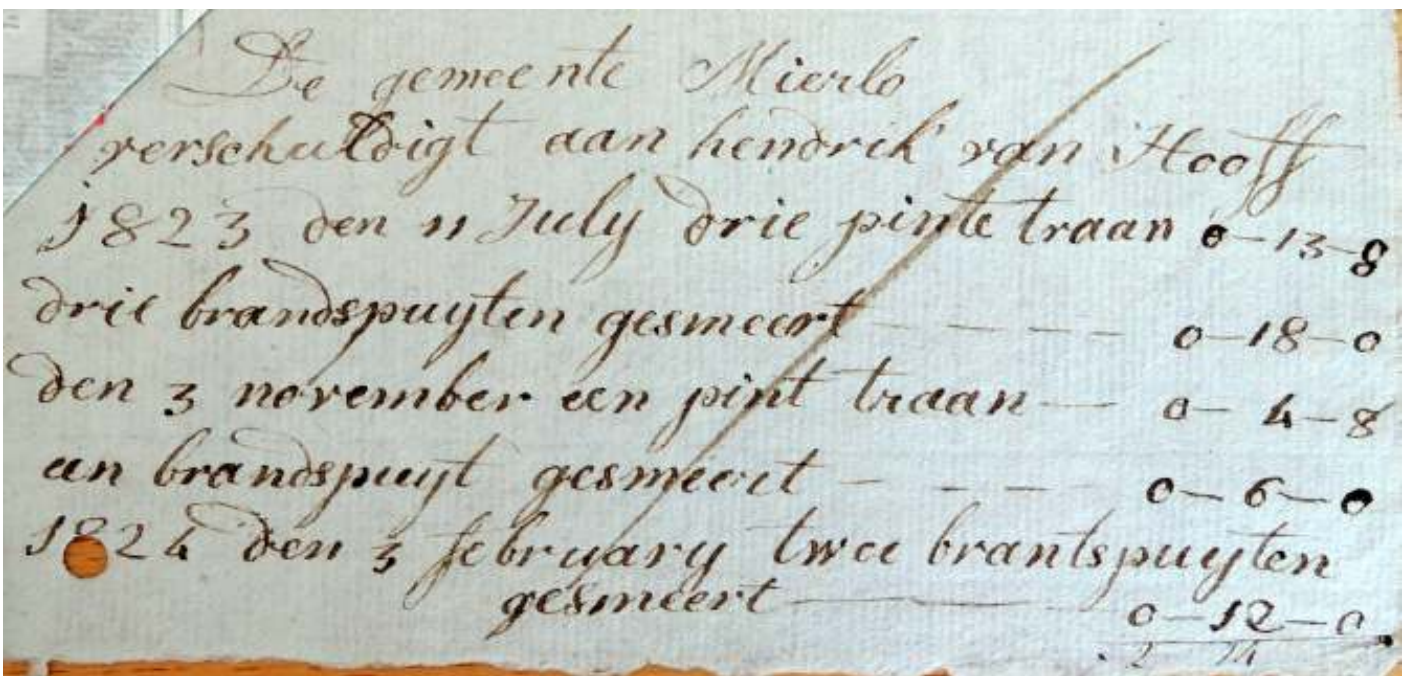 De gemeente Mierlo
verschuldigt aan hendrik van Hooff
1823 den 11 July drie pinte traan 0-13-8
drie brandspuyten gesmeert - - - - - 0-18-0
den 3 november een pint traan - - 0-4-8
een brandspuyt gesmeert - - - - 0-6-0
1824 den 3 february twee brantspuyten
gesmeert - - 0-12-0
2 14